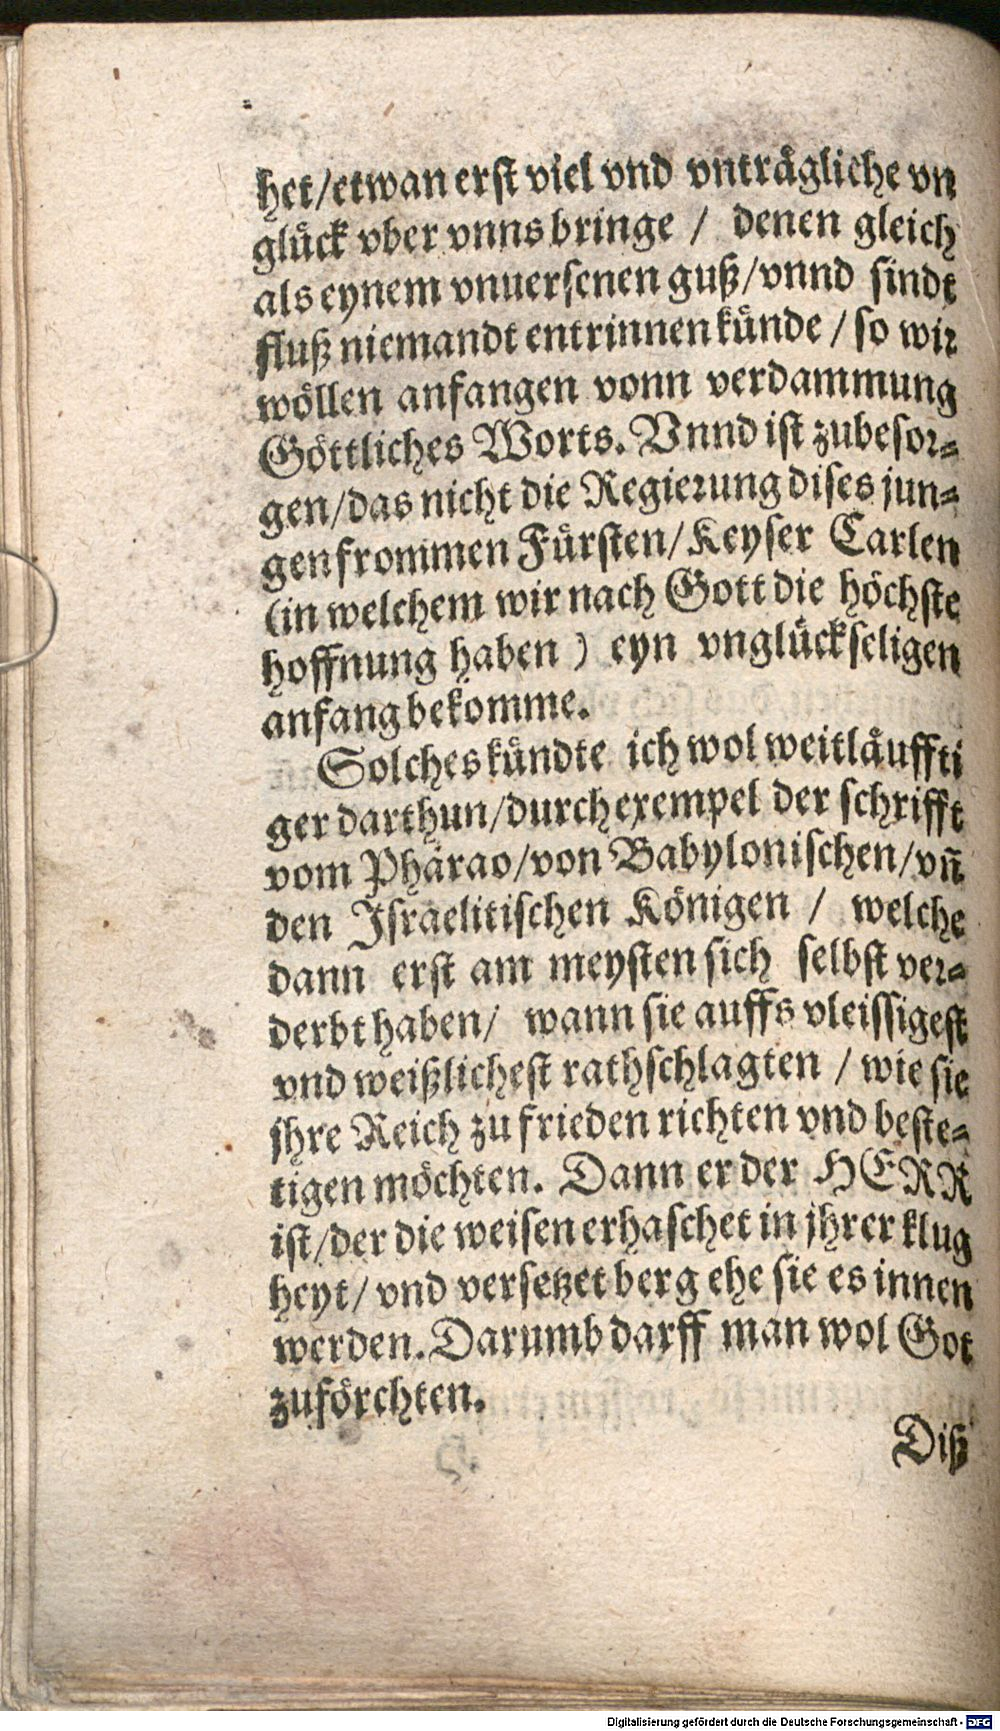 het/etwan erst viel vnd vnträgliche vn
glück vber vnns bringe / denen gleich
als eynem vnuersenen guß/vnnd sindt
fluß niemandt entrinnen künde / so wir
wöllen anfangen vonn verdammung
Göttliches Worts. Vnnd ist zubesor-
gen/das nicht die Regierung dises jun-
gen frommen Fürsten/Keyser Carlen
(in welchem wir nach Gott die höchste
hoffnung haben) eyn vnglückseligen
anfang bekomme.
Solches kündte ich wol weitläuffti
ger darthun/durch exempel der schrifft
vom Pharao/von Babylonischen/vn̄
den Israelitischen Königen / welche
dann erst am meysten sich selbst ver-
derbt haben/ wann sie auffs vleissigest
vnd weißlichest rathschlagten / wie sie
jhre Reich zu frieden richten vnd beste-
tigen möchten. Dann er der HERR
ist/der die weisen erhaschet in jhrer klug
heyt/ vnd versetzet berg ehe sie es innen
werden. Darumb darff man wol Got
zuförchten.
Diß
Digitalisierung gefördert durch die Deutsche Forschungsgemeinschaft - DFG